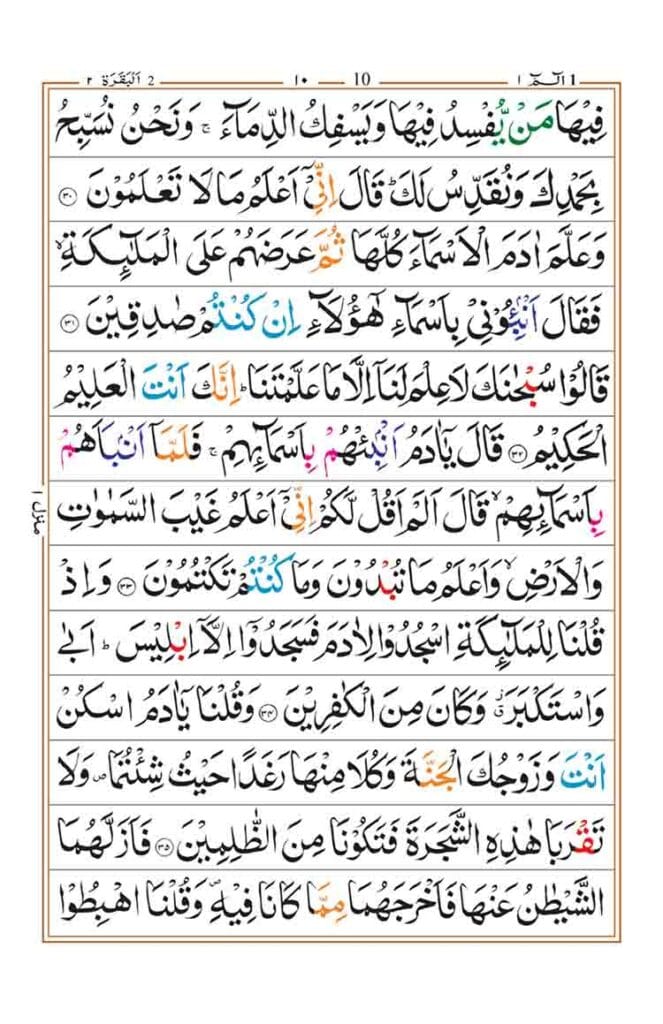 1 الٓمّٓ ١
10 ١٠
2 اَلْبَقَرَة ٢
فِيْهَا مَنْ يُّفْسِدُ فِيْهَا وَيَسْفِكُ الدِّمَآءَ ۚ وَنَحْنُ نُسَبِّحُ
بِحَمْدِكَ وَنُقَدِّسُ لَكَ ؕ قَالَ اِنِّيْٓ اَعْلَمُ مَا لَا تَعْلَمُوْنَ ۝٣٠
وَعَلَّمَ اٰدَمَ الْاَسْمَآءَ كُلَّهَا ثُمَّ عَرَضَهُمْ عَلَى الْمَلٰٓئِكَةِ ۙ
فَقَالَ اَنْۢبِـُٔوْنِيْ بِاَسْمَآءِ هٰٓؤُلَآءِ اِنْ كُنْتُمْ صٰدِقِيْنَ ۝٣١
قَالُوْا سُبْحٰنَكَ لَا عِلْمَ لَنَآ اِلَّا مَا عَلَّمْتَنَا ؕ اِنَّكَ اَنْتَ الْعَلِيْمُ
الْحَكِيْمُ ۝٣٢ قَالَ يٰٓاٰدَمُ اَنْۢبِئْهُمْ بِاَسْمَآئِهِمْ ۚ فَلَمَّآ اَنْۢبَاَهُمْ
بِاَسْمَآئِهِمْ ۙ قَالَ اَلَمْ اَقُلْ لَّكُمْ اِنِّيْٓ اَعْلَمُ غَيْبَ السَّمٰوٰتِ
وَالْاَرْضِ ۙ وَاَعْلَمُ مَا تُبْدُوْنَ وَمَا كُنْتُمْ تَكْتُمُوْنَ ۝٣٣ وَاِذْ
قُلْنَا لِلْمَلٰٓئِكَةِ اسْجُدُوْا لِاٰدَمَ فَسَجَدُوْٓا اِلَّآ اِبْلِيْسَ ؕ اَبٰى
وَاسْتَكْبَرَ ۫ وَكَانَ مِنَ الْكٰفِرِيْنَ ۝٣٤ وَقُلْنَا يٰٓاٰدَمُ اسْكُنْ
اَنْتَ وَزَوْجُكَ الْجَنَّةَ وَكُلَا مِنْهَا رَغَدًا حَيْثُ شِئْتُمَا ۪ وَلَا
تَقْرَبَا هٰذِهِ الشَّجَرَةَ فَتَكُوْنَا مِنَ الظّٰلِمِيْنَ ۝٣٥ فَاَزَلَّهُمَا
الشَّيْطٰنُ عَنْهَا فَاَخْرَجَهُمَا مِمَّا كَانَا فِيْهِ ۪ وَقُلْنَا اهْبِطُوْا
منزل ١